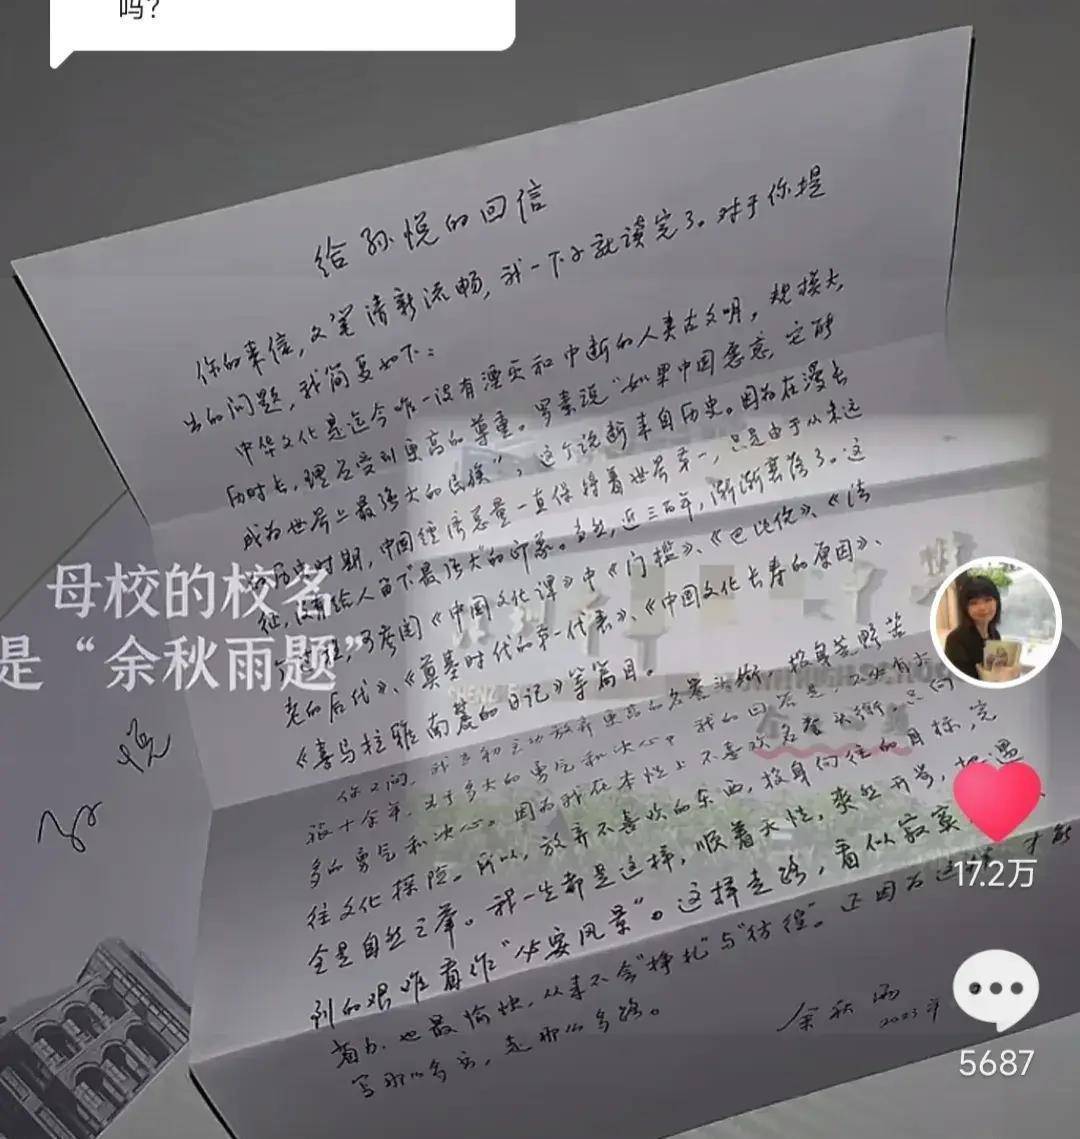 吗？
给孙悦的回信
你的来信，文笔清新流畅，我一下子就读完了。对于你提
出的问题，我简复如下：
中华文化是迄今唯一没有湮灭和中断的人类古文明，规模大，
历时长，理应受到更高的尊重。罗素说“如果中国愿意，它能
成为世界上最强大的民族”，这个论断来自历史。因为在漫长
历史时期，中国经济总量一直保持着世界第一，只是由于从未远
征，没有给人留下“最强大”的印象。当然，近三百年，渐渐衰落了。这
可参阅《中国文化课》中《门槛》、《巴比伦》、《法
老的后代》、《奠基时代的第一代表》、《中国文化长寿的原因》、
《喜马拉雅南麓的日记》等篇目。
你又问，我当初主动放弃更高的名誉头衔，投身荒野苦
旅十余年，出于多大的勇气和决心？我的回答是，
多的勇气和决心。因为我在本性上不喜欢名誉头衔，只
往文化探险。所以，放弃不喜欢的东西，投身向往的目标，完
全是自然之举。我一生都是这样，顺着天性，爽然开步，把遇
到的艰难看作“必要风景”。这样走路，看似寂寞
着力，也最愉快，从来不会“挣扎”与“彷徨”。正因为这样，才能
写那么多书，走那么多路。
余秋雨
2023年
母校的校名
是“余秋雨题”
孙悦
SHENZHEN
HIGH SCHOOL
余秋雨题
17.2万
5687